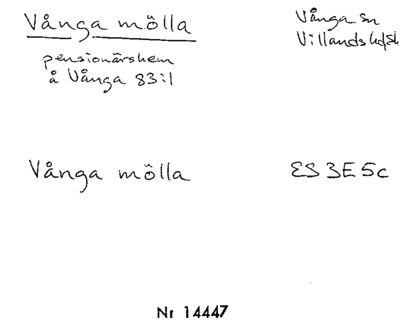 Vånga mölla
Vånga sn
Villands hd sk
pensionärshem
å Vånga 83:1
Vånga mölla
ES 3E 5c
Nr 14447